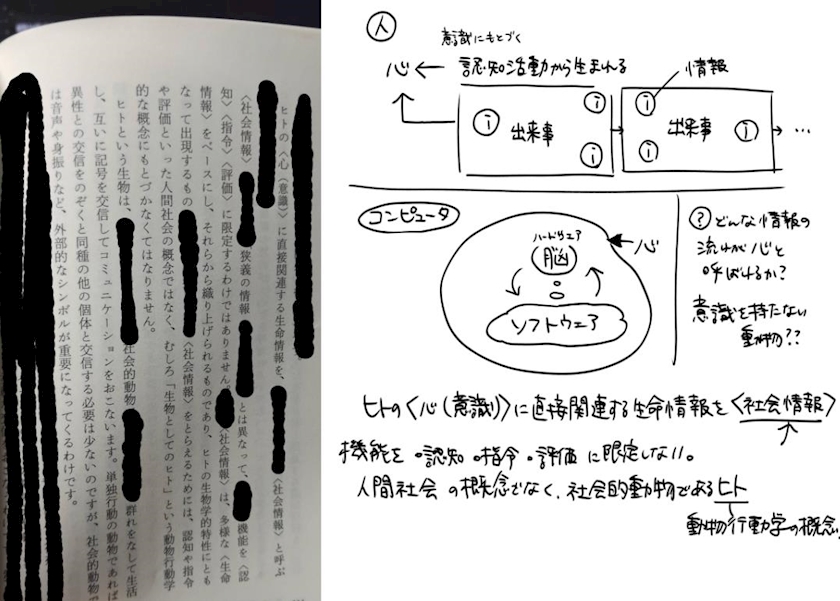 ヒトの〈心(意識)〉に直接関連する生命情報を、
〈社会情報〉と呼ぶ
〈社会情報〉
狭義の情報
とは異なって、
機能を〈認
知〉〈指令〉〈評価〉に限定するわけではありません。
〈社会情報〉は、多様な〈生命
情報〉をベースにし、それらから織り上げられるものであり、ヒトの生物学的特性にとも
なって出現するもの
〈社会情報〉をとらえるためには、認知や指令
や評価といった人間社会の概念ではなく、むしろ「生物としてのヒト」という動物行動学
的な概念にもとづかなくてはなりません。
ヒトという生物は、
社会的動物
群れをなして生活
し、互いに記号を交信してコミュニケーションをおこないます。単独行動の動物であれば
異性との交信をのぞくと同種の他の個体と交信する必要は少ないのですが、社会的動物
は音声や身振りなど、外部的なシンボルが重要になってくるわけです。
人
意識にもとづく
心 ← 認知活動から生まれる
情報
i i i 出来事
i i i 出来事 …
コンピュータ
ハードウェア
脳
心
ソフトウェア
? どんな情報の
流れが心と
呼ばれるか?
意識を持たない
動物??
ヒトの〈心(意識)〉に直接関連する生命情報を〈社会情報〉
機能を・認知・指令・評価に限定しない。
人間社会の概念でなく、社会的動物であるヒト
動物行動学の概念。